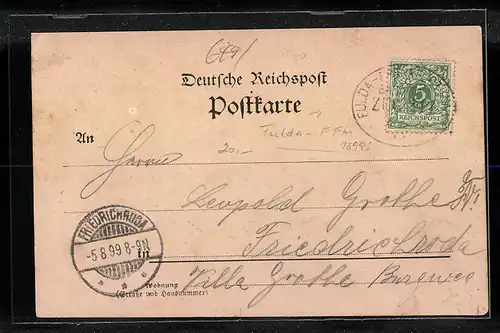 (69)
Deutsche Reichspost
Postkarte
FULDA-F
5
REICHSPOST
An
Fulda - FFM
20,-
1899
Herrn
Leopold Grothe
FRIEDRICHRODA
-5.8.99 8-9N
in
Friedrichroda
Wohnung
(Straße und Hausnummer)
Villa Grothe